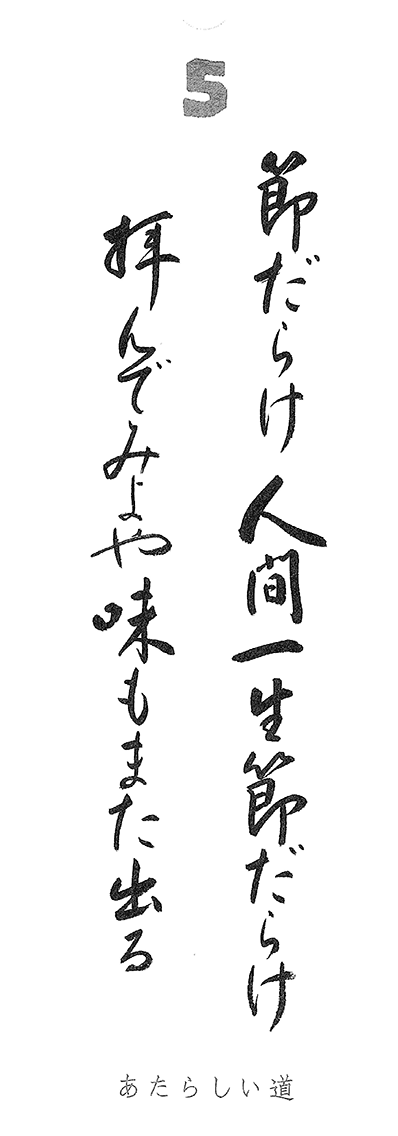 5
節だらけ 人間一生節だらけ
拝んでみよや味もまた出る
あたらしい道